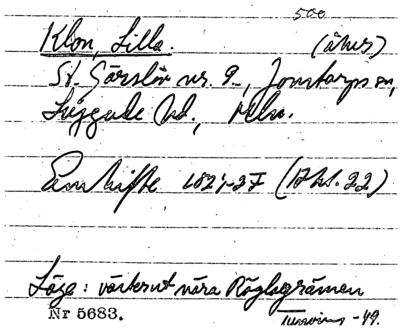 500
Klon, Lilla. (åker)
St. Görslöv nr. 9., Jonstorps sn,
Luggude hd., Mlm.
Enskifte 1821-27 (Akt. 22)
Läge: västerut nära Röglegränsen
Nr 5683. -49.